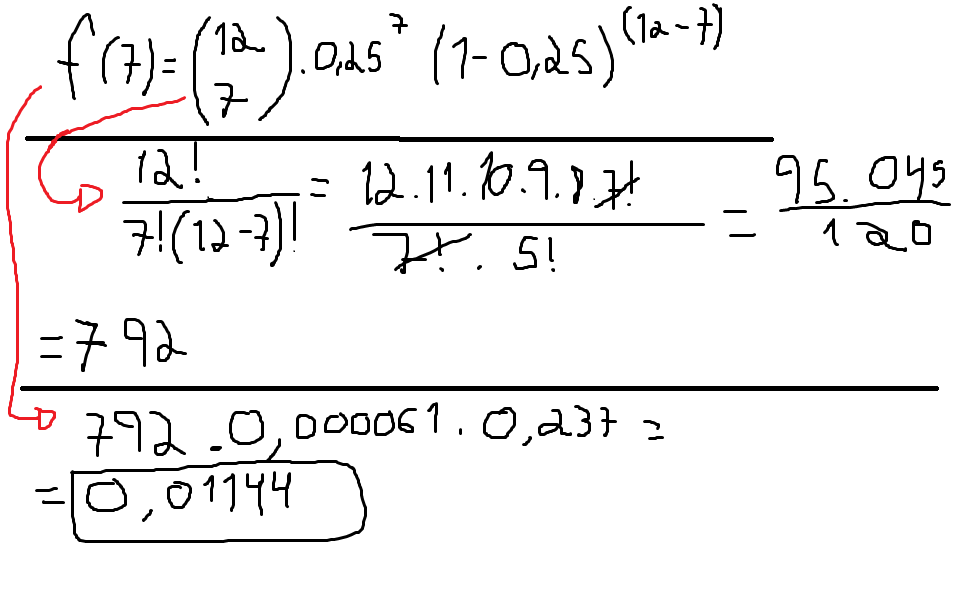 f(7)=(12 7).0,25^7 (1-0,25)^(12-7)
12!/7!(12-7)! = 12.11.10.9.8.7!/7!.5! = 95.045/120
=792
792.0,000061.0,237=
=0,01144